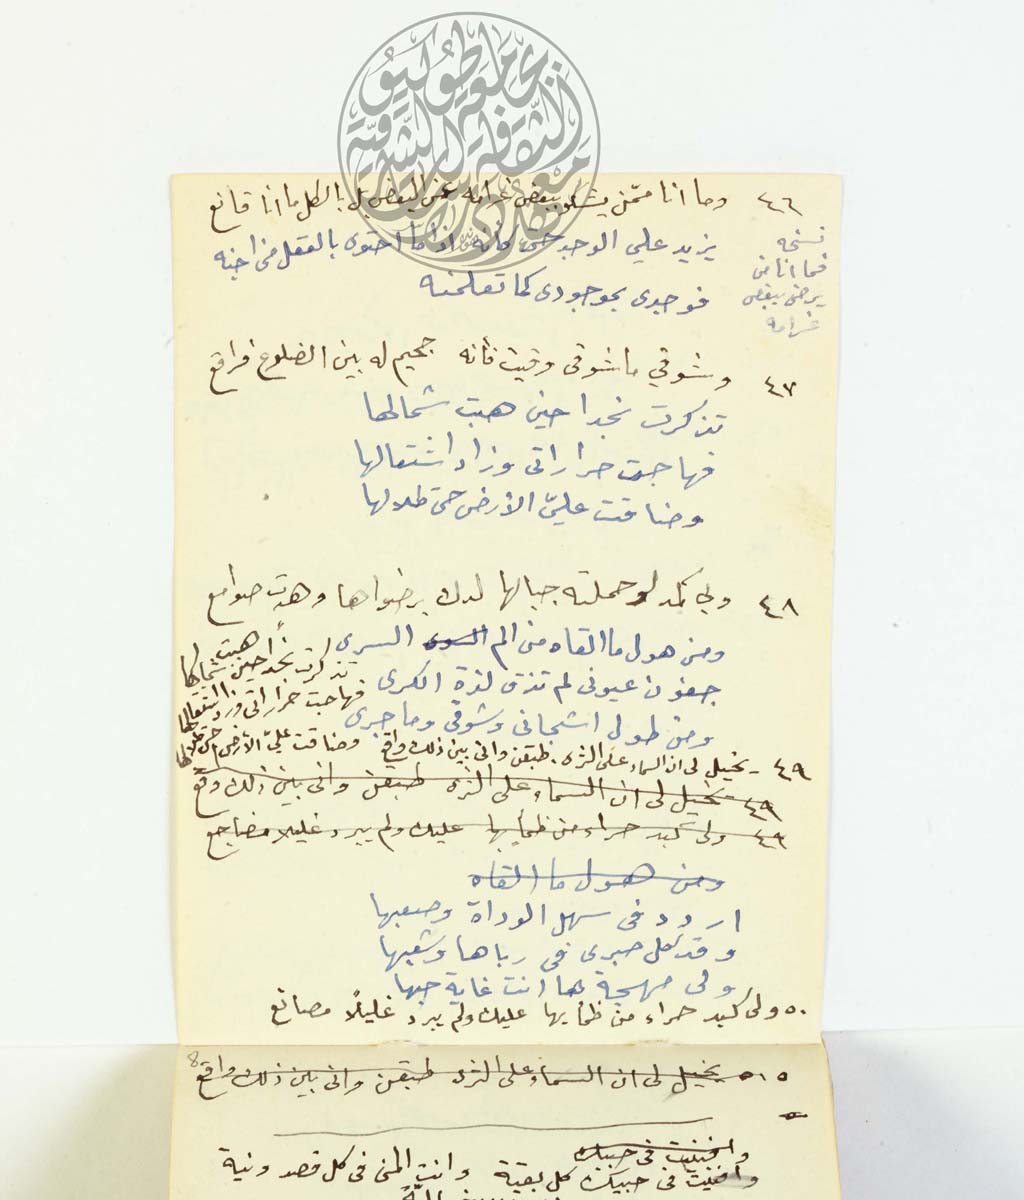 ٤٦ وما انا ممّن يشكو ببعض غرامه عن البعض بل بالكل ما انا قانع
نسخه
فما انا من
يرضى ببعض
غرامه
يزيد علي الوجد حتى كأنه اذا ما احتوى بالعقل مني اجنه
فوجدى بموجودى كما تعلمنه
٤٧ وشوقي ما شوقى وقيت فأنه جحيم له بين الضلوع فراقع
تذكرت نجدا حين هبت شمالها
فهاجت حراراتى وزاد اشتعالها
وضاقت عليّ الأرض حتى طلالها
٤٨ وبي كمد لو حملته جبالها لدك برضواها وهدّت صوامع
ومن هول ما القاه من الم السرى
جفون عيونى لم تذق لذة الكرى
ومن طول اشجانى وشوقى وما جرى
تذكرت نجداً حين هبت شمالها
فهاجت حراراتى وزاد اشتعالها
وضاقت عليّ الأرض حتى طلالها
٤٩ - يخيل لى ان السماء على الثرى . طبقن وانى بين ذلك واقع
٤٩ يخيل لى ان السماء على الثرى طبقن وانى بين ذلك وقع
٤٩ ولى كبد حراء من ظمأ بها عليك ولم يبرد غليلا مضاجع
ومن هول ما القاه
اردد فى سهل الوداة وصعبها
وقد كل صبرى فى رباها وشعبها
ولى مهجة ها انت غاية حبها
٥٠ ولى كبد حراء من ظمأ بها عليك ولم يبرد غليلاً مصانع
8
٥١ يخيل لى ان السماء على الثرى طبقن وانى بين ذلك واقع
وافنيت فى حبيك
وافنيت فى حبيك كل بقية وانت المنى فى كل قصد ونية